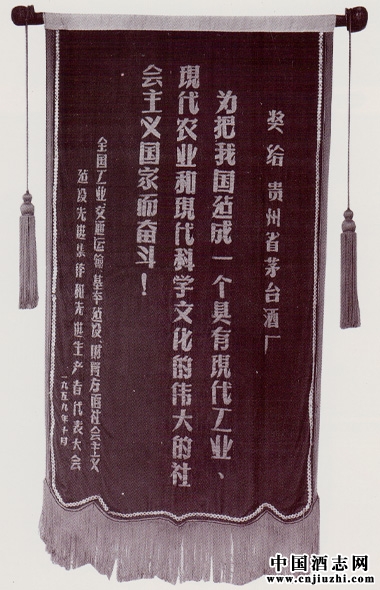 奖给 贵州省茅台酒厂
为把我国建成一个具有現代工业、
現代农业和現代科学文化的伟大的社
会主义国家而奋斗！
全国工业、交通运输、基本建设、财贸方面社会主义
建设先进集体和先进生产者代表大会
一九五九年十月
中国酒志网
www.cnjiuzhi.com